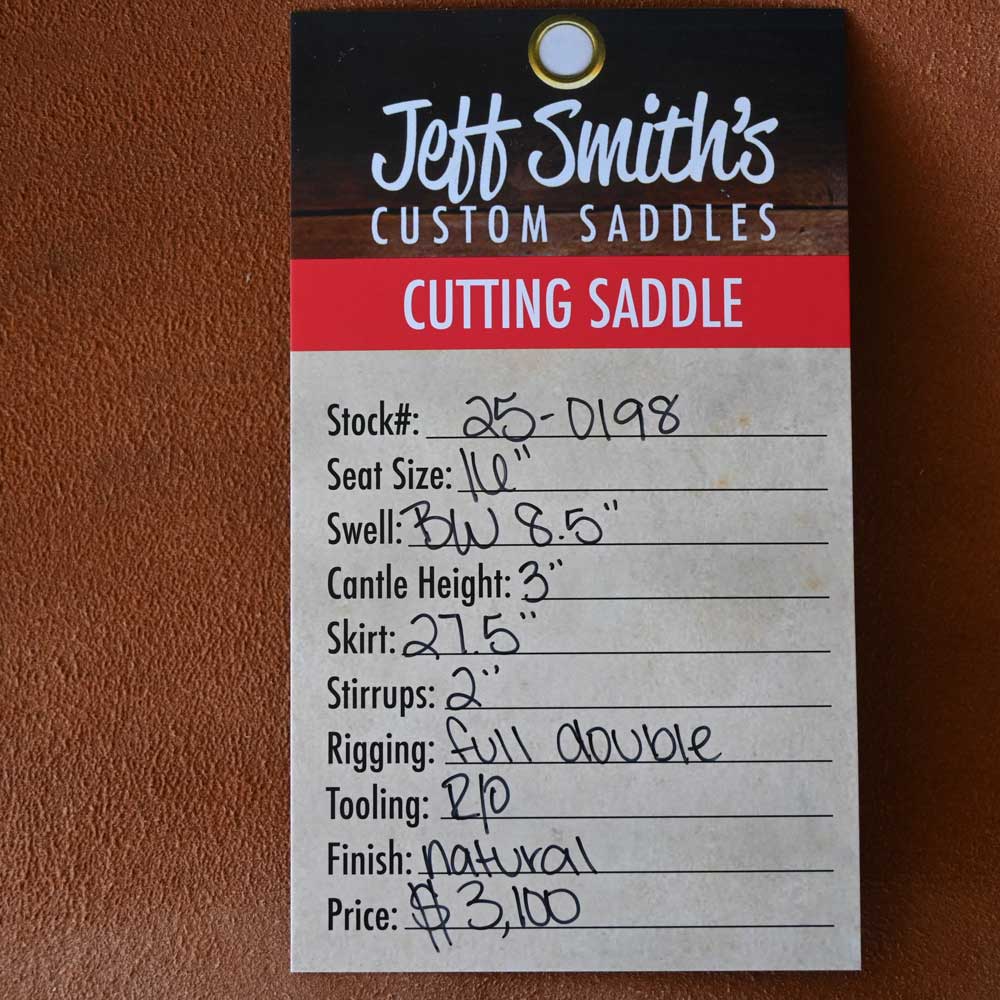 Jeff Smith's
CUSTOM SADDLES
CUTTING SADDLE
Stock#: 25-0198
Seat Size: 16"
Swell: BW 8.5"
Cantle Height: 3"
Skirt: 27.5"
Stirrups: 2"
Rigging: full double
Tooling: R/O
Finish: natural
Price: $3,100